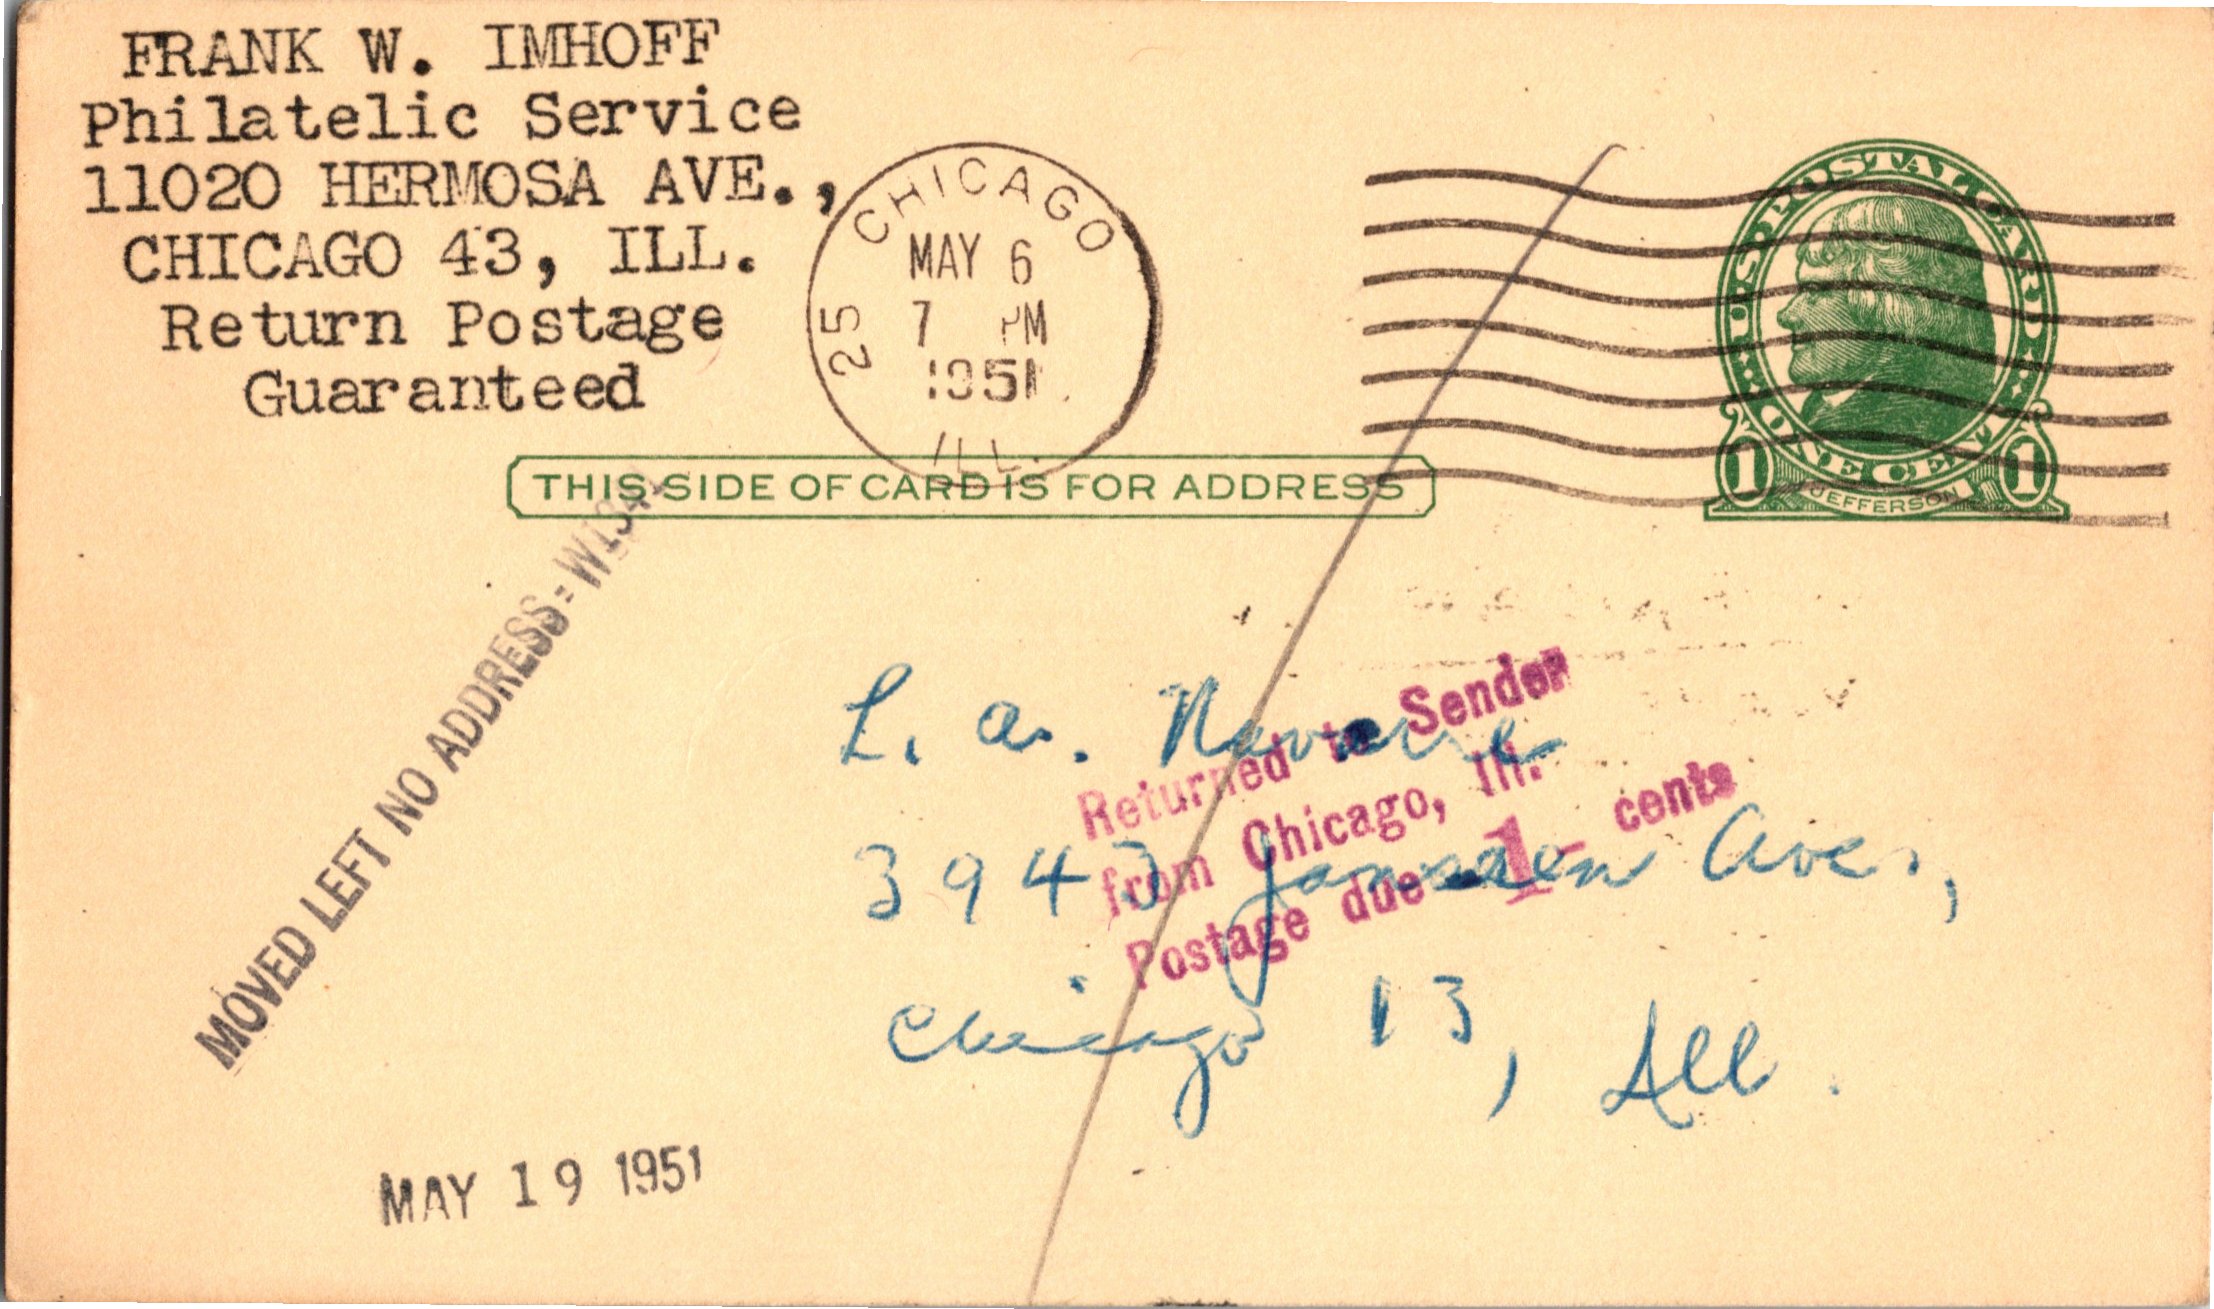 FRANK W. IMHOFF
Philatelic Service
11020 HERMOSA AVE.,
CHICAGO 43, ILL.
Return Postage
Guaranteed
CHICAGO
MAY 6
7 PM
1951
25
ILL.
U.S. POSTAL CARD
ONE CENT
1 1
JEFFERSON
THIS SIDE OF CARD IS FOR ADDRESS
MOVED LEFT NO ADDRESS=
L. A. Navarre
3943 Janssen Ave.,
Chicago 13, Ill.
Returned to Sender
from Chicago, Ill.
Postage due 1 cents
MAY 19 1951